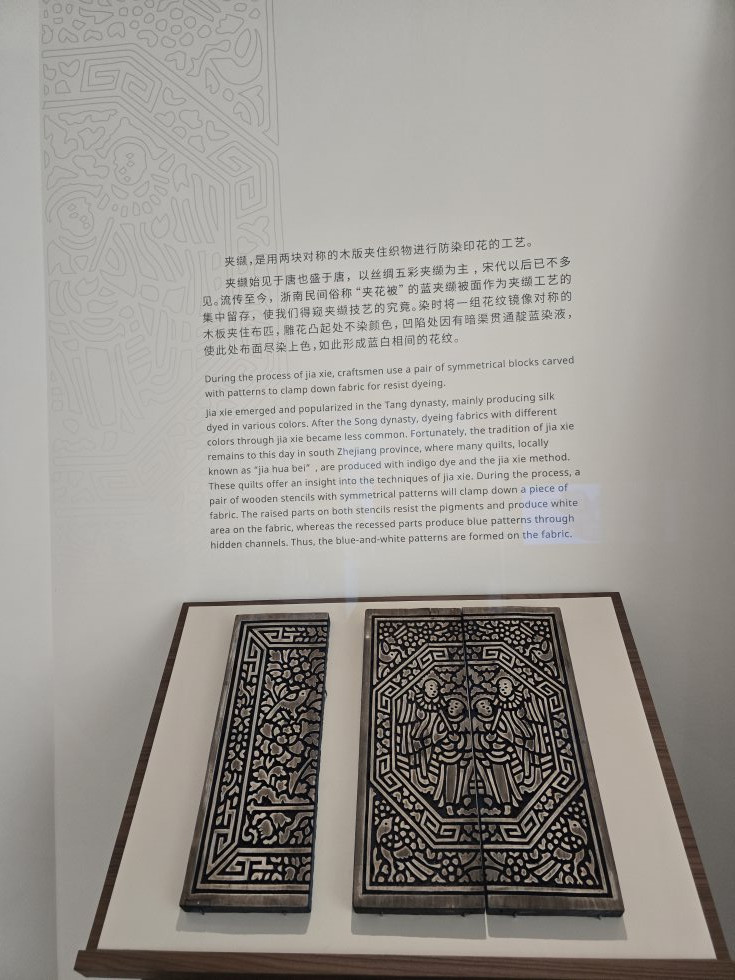 夹缬，是用两块对称的木版夹住织物进行防染印花的工艺。
夹缬始见于唐也盛于唐，以丝绸五彩夹缬为主，宋代以后已不多
见。流传至今，浙南民间俗称“夹花被”的蓝夹缬被面作为夹缬工艺的
集中留存，使我们得窥夹缬技艺的究竟。染时将一组花纹镜像对称的
木板夹住布匹，雕花凸起处不染颜色，凹陷处因有暗渠贯通靛蓝染液，
使此处布面尽染上色，如此形成蓝白相间的花纹。
During the process of jia xie, craftsmen use a pair of symmetrical blocks carved
with patterns to clamp down fabric for resist dyeing.
Jia xie emerged and popularized in the Tang dynasty, mainly producing silk
dyed in various colors. After the Song dynasty, dyeing fabrics with different
colors through jia xie became less common. Fortunately, the tradition of jia xie
remains to this day in south Zhejiang province, where many quilts, locally
known as “jia hua bei” , are produced with indigo dye and the jia xie method.
These quilts offer an insight into the techniques of jia xie. During the process, a
pair of wooden stencils with symmetrical patterns will clamp down a piece of
fabric. The raised parts on both stencils resist the pigments and produce white
area on the fabric, whereas the recessed parts produce blue patterns through
hidden channels. Thus, the blue-and-white patterns are formed on the fabric.